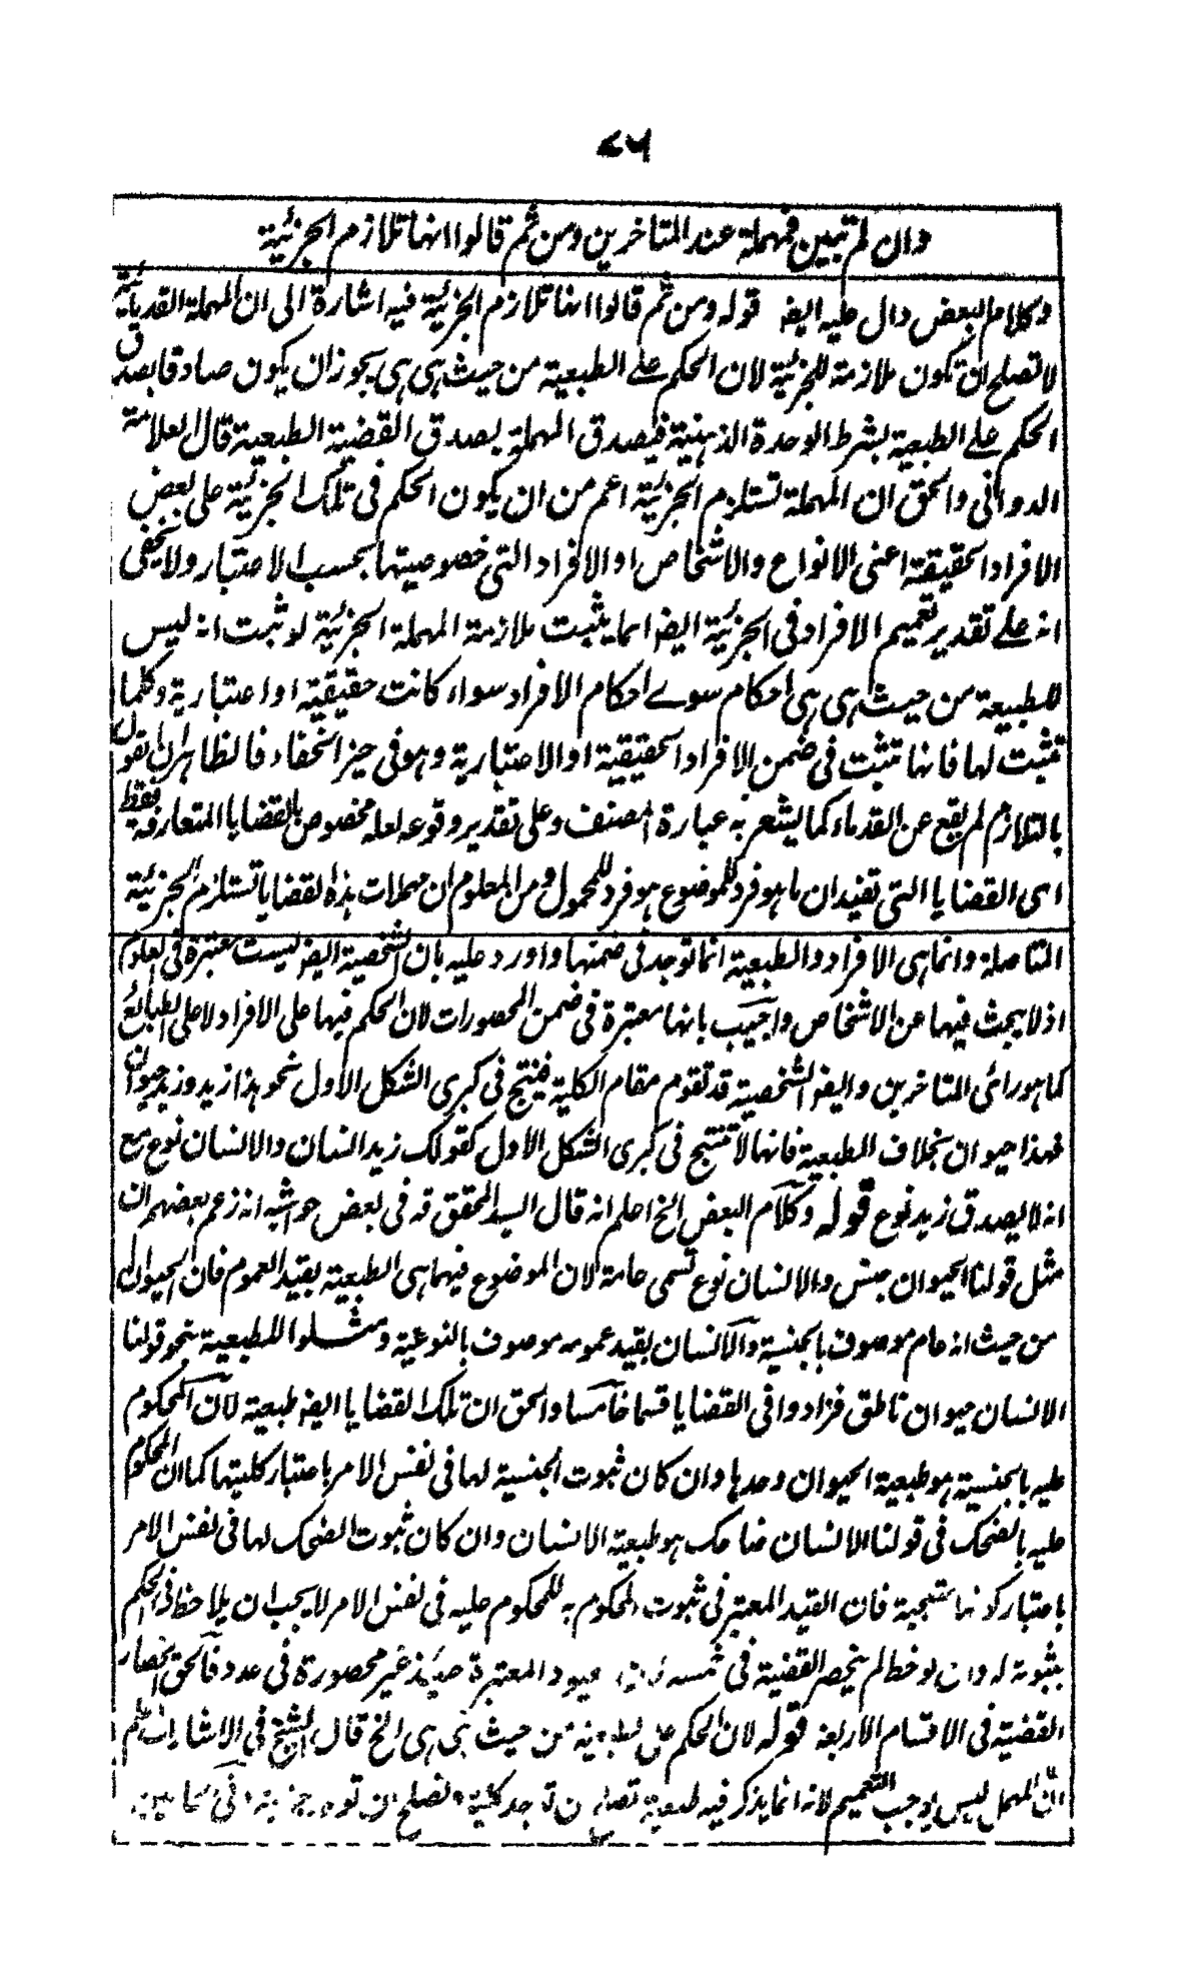 ٧٦
وان لم تبين فمهملة عند المتاخرين ومن ثم قالوا انها تلازم الجزئية
وكلام البعض دال عليه ايضا قوله ومن ثم قالوا انها تلازم الجزئية فيه اشارة الى ان المهملة القدمائية
لا تصلح ان تكون ملازمة للجزئية لان الحكم على الطبيعية من حيث هى هى يجوز ان يكون صادقا بصدق
الحكم على الطبيعية بشرط الوحدة الذهنية فيصدق المهملة بصدق القضية الطبعية قال العلامة
الدوانى والحق ان المهملة تستلزم الجزئية اعم من ان يكون الحكم فى تلك الجزئية على بعض
الافراد الحقيقية اعنى الانواع والاشخاص او الافراد التى خصوصيتها بحسب الاعتبار ولا يخفى
انه على تقدير تعميم الافراد فى الجزئية ايضا انما يثبت ملازمة المهملة الجزئية لو ثبت انه ليس
للطبيعة من حيث هى هى احكام سوے احكام الافراد سواء كانت حقيقية او اعتبارية وكلما
تثبت لها فانها تثبت فى ضمن الافراد الحقيقية او الاعتبارية وهو فى حيز الخفاء فالظاهر ان القول
بالتلازم لم يقع عن القدماء كما يشعر به عبارة المصنف وعلى تقدير وقوعه لعله مخصوص بالقضايا المتعارفة فقط
اى القضايا التى تفيد ان ما هو فرد للموضوع هو فرد للمحمول ومن المعلوم ان مهملات هذه القضايا تستلزم الجزئية
المتاصلة وانما هى الافراد والطبعية انما توجد فى ضمنها واورد عليه بان الشخصية ايضا ليست معتبرة فى العلوم
اذ لا يبحث فيها عن الاشخاص واجيب بانها معتبرة فى ضمن المحصورات لان الحكم فيها على الافراد لا على الطبائع
كما هو رائى المتاخرين وايضا الشخصية قد تقوم مقام الكلية فينتج فى كبرى الشكل الاول نحو هذا زيد وزيد حيوان
فهذا حيوان بخلاف الطبعية فانها لا تنتج فى كبرى الشكل الاول كقولك زيد انسان والانسان نوع مع
انه لا يصدق زيد نوع قوله وكلام البعض الخ اعلم انه قال السيد المحقق قه فى بعض حواشيه انه زعم بعضهم ان
مثل قولنا الحيوان جنس والانسان نوع تسمى عامة لان الموضوع فيهما هى الطبعية بقيد العموم فان الحيوان
من حيث انه عام موصوف بالجنسية والانسان بقيد عمومه موصوف بالنوعية ومثلوا للطبعية بنحو قولنا
الانسان حيوان ناطق فزادوا فى القضايا قسما خامسا والحق ان تلك القضايا ايضا طبعية لان المحكوم
عليه بالجنسية هو طبعية الحيوان وحدها وان كان ثبوت الجنسية لها فى نفس الامر باعتبار كليتها كما ان المحكوم
عليه بالضحك فى قولنا الانسان ضاحك هو طبعية الانسان وان كان ثبوت الضحك لها فى نفس الامر
باعتبار كونها متعجبة فان القيد المعتبر فى ثبوت المحكوم به للمحكوم عليه فى نفس الامر لا يجب ان يلاحظ فى الحكم
بثبوته له وان لوحظ لم ينحصر القضية فى خمسة المعتبرة حينئذ غير محصورة فى عدد فالحق انحصار
القضية فى الاقسام الاربعة قوله لان الحكم على الطبعية من حيث هى هى الخ قال الشيخ فى الاشارات اعلم
ان المهمل ليس يوجب التعميم لانه انما يذكر فيه طبعية تصلح ان توجد كلية وتصلح ان توجد جزئية